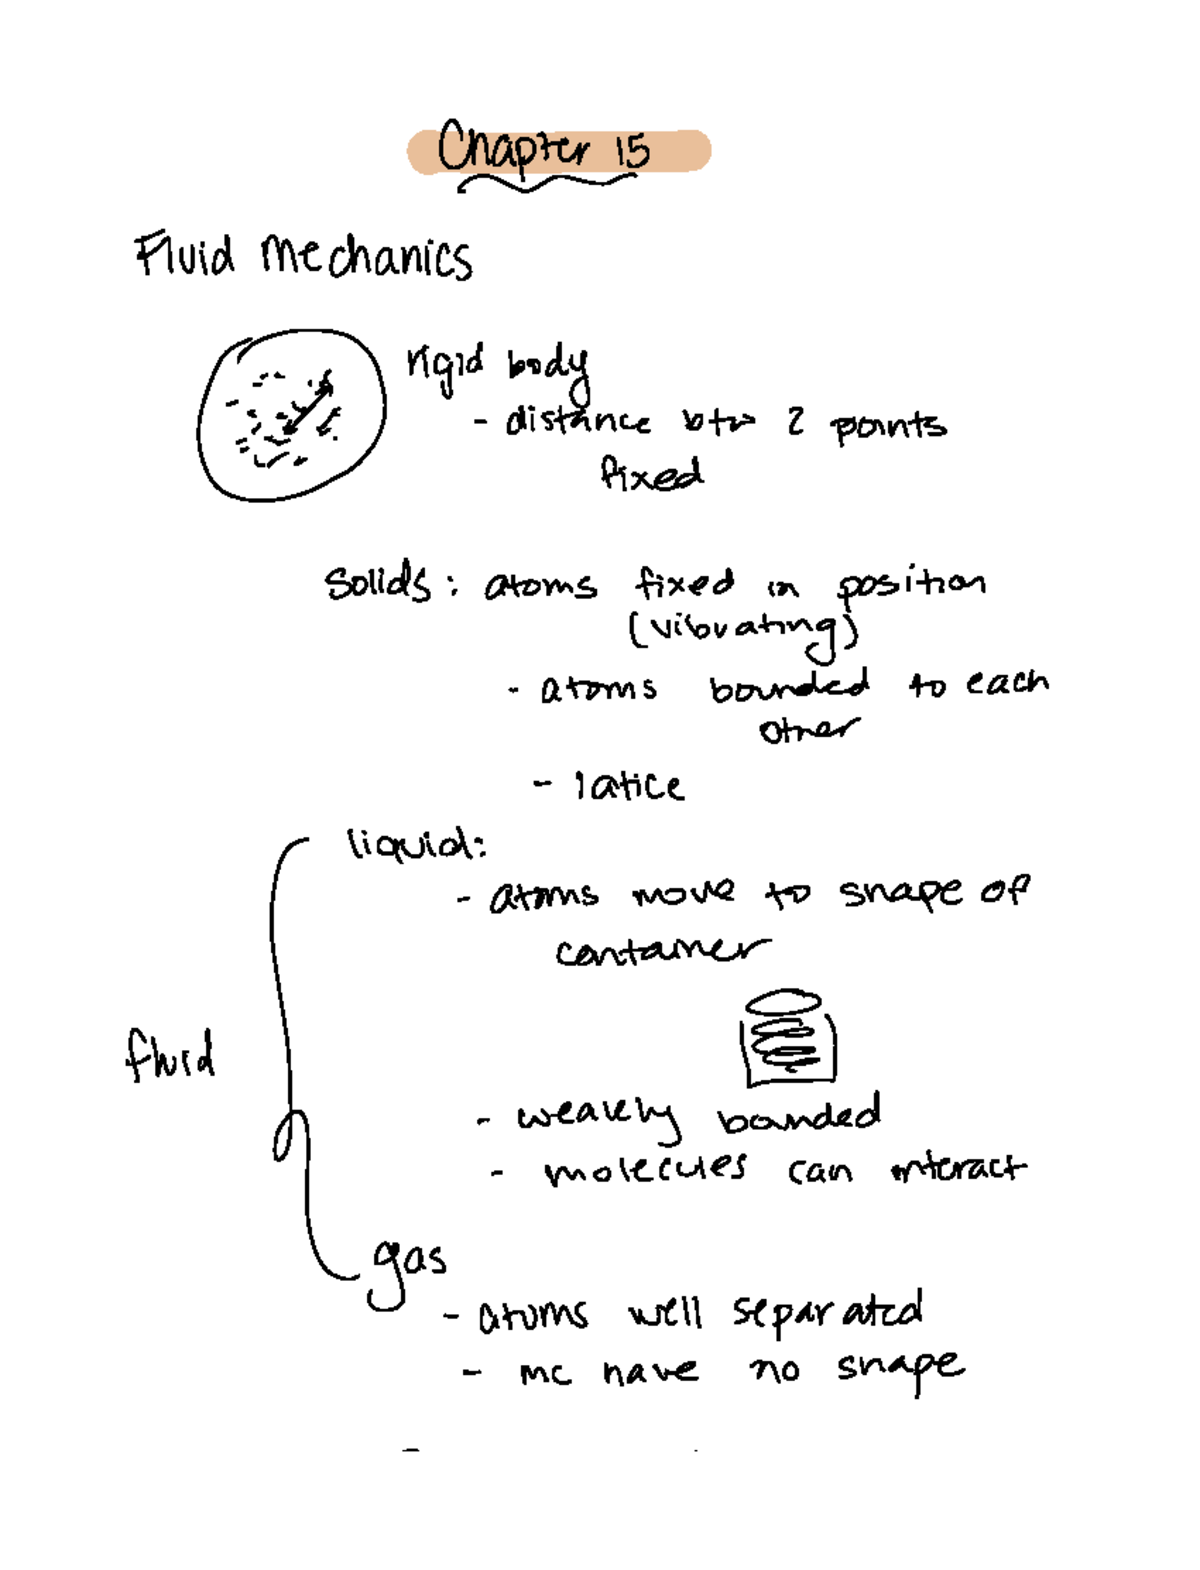 Chapter 15
Fluid mechanics
rigid body
- distance btw 2 points
fixed
Solids: atoms fixed in position
(vibrating)
- atoms bounded to each
other
- latice
liquid:
- atoms move to shape of
container
fluid
- weakly bounded
- molecules can interact
gas
- atoms well separated
- mc have no shape